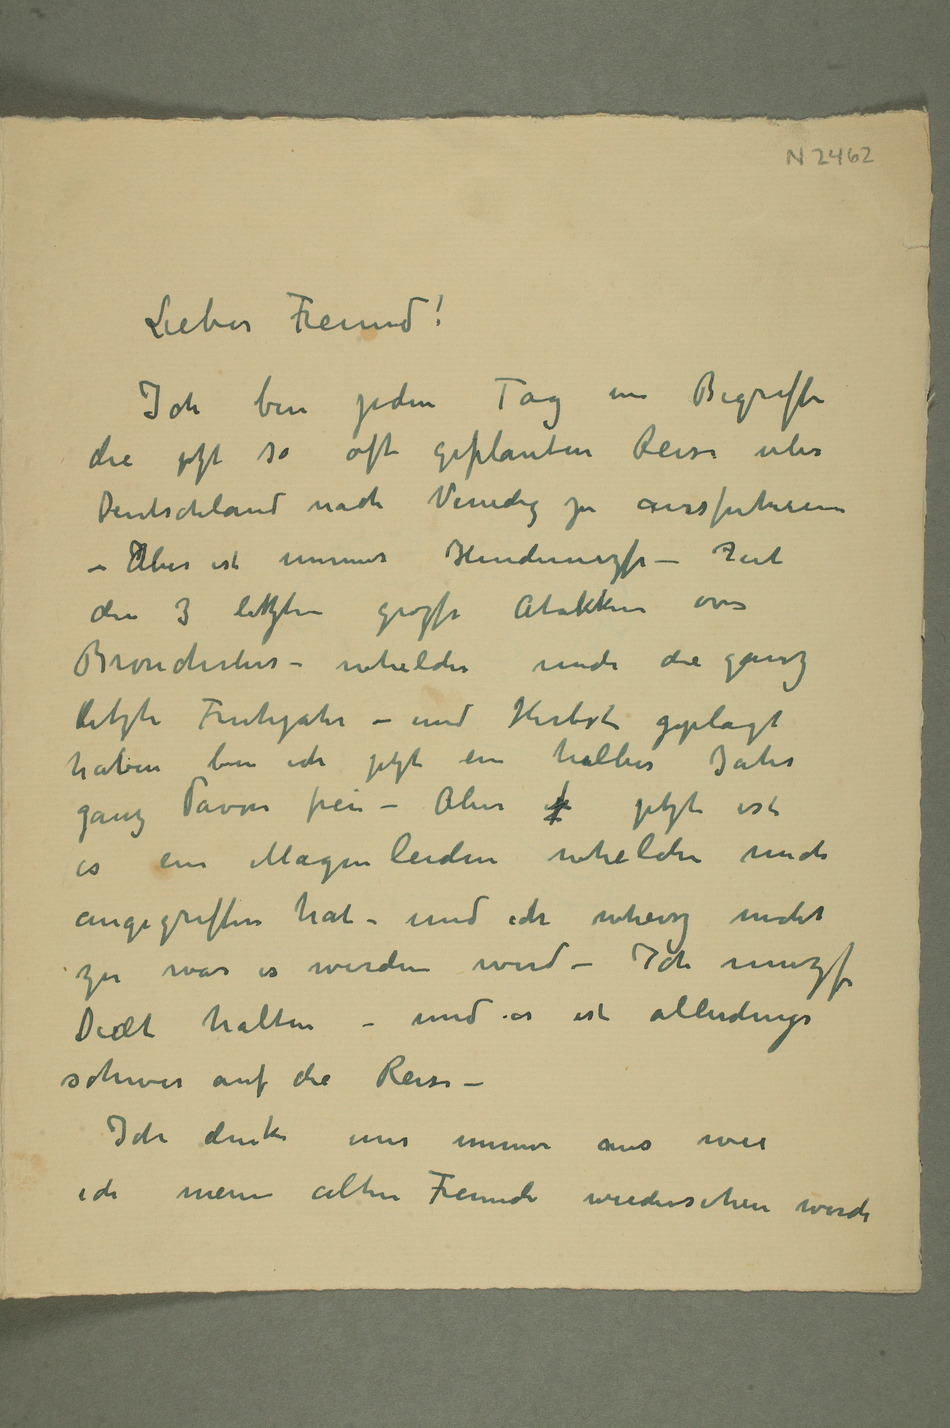 N 2462
Lieber Freund!
Ich bin jeden Tag im Begriffe
die jetzt so oft geplanten Reise über
Deutschland nach Venedig zu ausfuhren
– Aber ist immer Hindernizse – Zeit
den 3 letzten grozse Atakken von
Bronchitus – whelche mich die ganz
letzte Fruhjahr – und Herbst geplagt
haben bin ich jetzt ein halbes Jahr
ganz davon frei – Aber jetzt ist
es ein Magenleiden whelche mich
angegriffen hat – und ich wheisz nicht
zu was es werden wird – Ich muzs
Diæt halten – und es ist allerdings
schwer auf die Reise –
Ich denke mir immer aus wie
ich meine alten Freunde wiedersehen werde